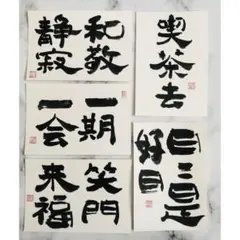 喫茶去
日々是
好日
和敬
静寂
一期
一会
笑門
来福